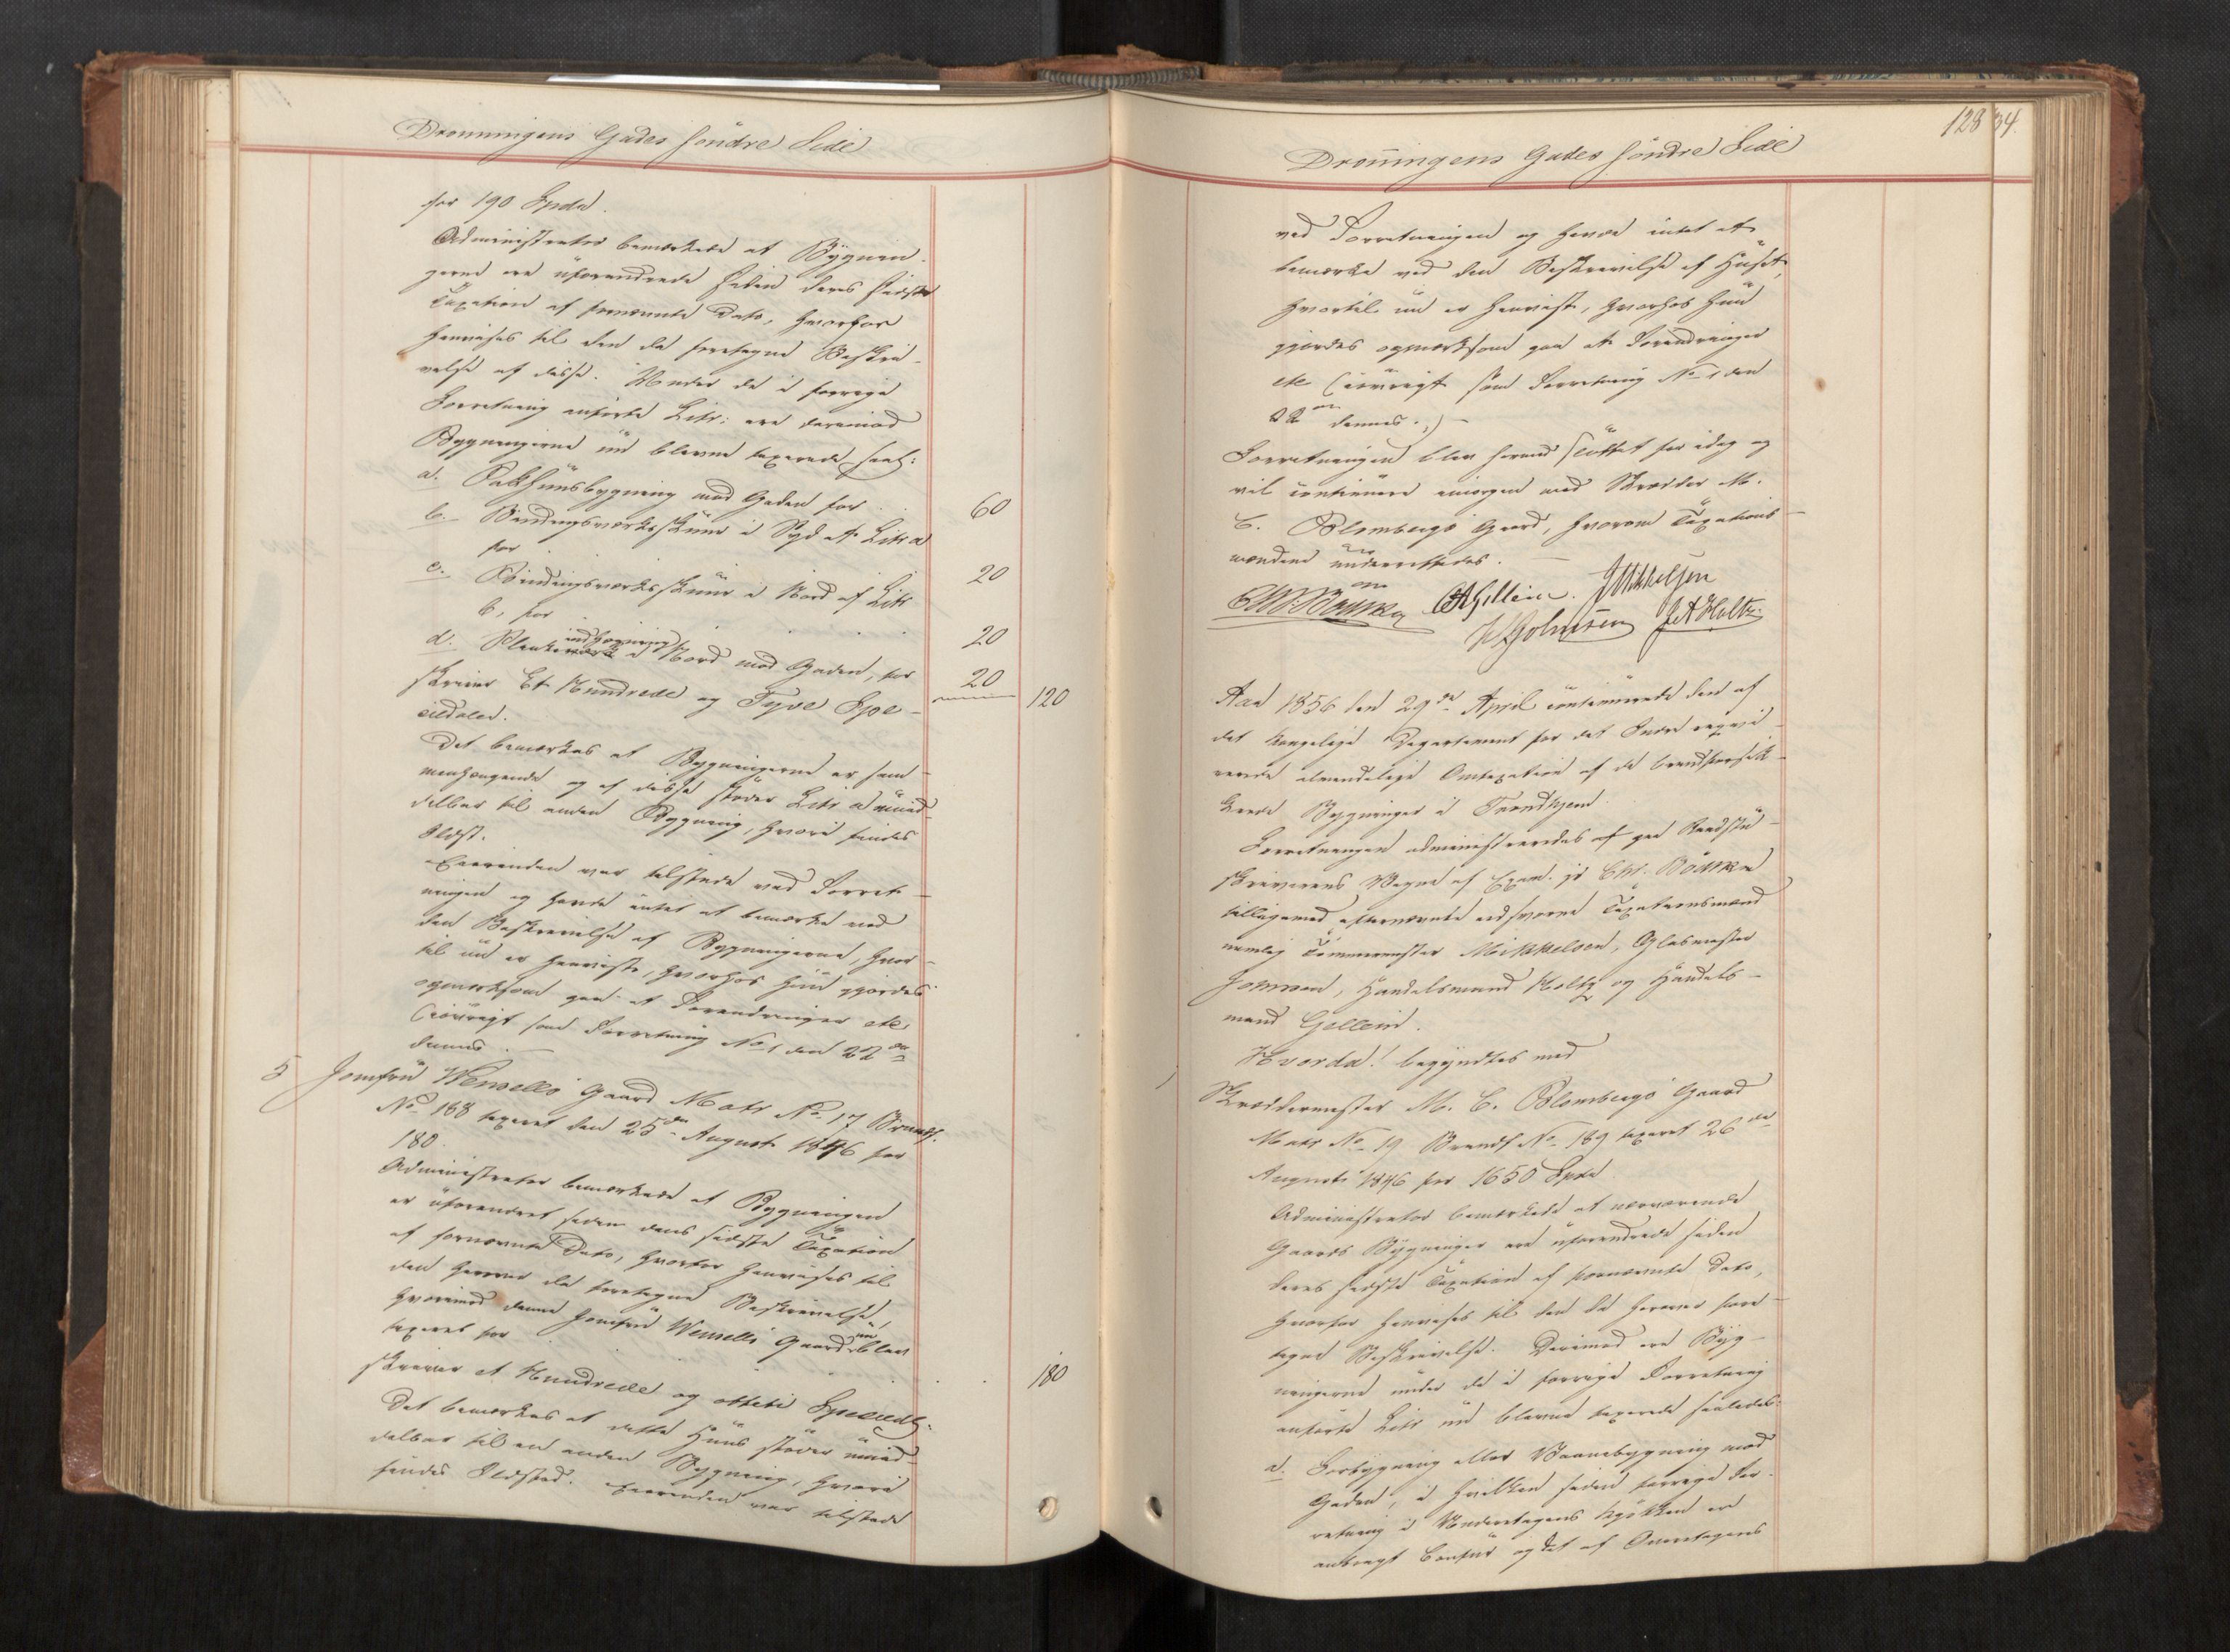 Dronningens Gades söndre Side
for 190 Spdlr.
Administrator bemærkede at Bygnin-
gerne ere uforandrede siden deres sidste
Taxation af fornævnte Dato, hvorfor
henvises til den da foretagne Beskri-
velse af disse. Under de i forrige
Forretning anførte Litr: ere derimod
Bygningerne nu blevne taxerede saal:
a. Pakhuusbygning mod Gaden for 60
b. Bindingsværksskuur i Syd af Litr a
for 20
c. Bindingsværksskuur i Nord af Litr
b, for 20
d. Plankeværk indhegning i Nord mod Gaden, for 20
skriver Et Hundrede og Tyve Spe- 120
ciedaler.
Det bemærkes at Bygningerne er sam-
menhængende og af disse støder Litr a umid-
delbar til anden Bygning, hvori findes
Ildst.
Eierinden var tilstede ved Forret-
ningen og havde intet at bemærke ved
den Beskrivelse af Bygningerne, hvor-
til nu er henviist, hvorhos hun gjordes
opmærksom paa at Forandringer etc
(iøvrigt som Forretning No 1 den 22de
dennes.
5 Jomfru Wensells Gaard Matr No 17 Brandf.
No 188 taxeret den 25de August 1846 for
180.
Administrator bemærkede at Bygningen
er uforandret siden dens sidste Taxation
af fornævnte Dato, hvorfor henvises til
den herover da foretagne Beskrivelse,
hvorimod denne Jomfru Wensells Gaard nu blev
taxeret for 180
skriver et Hundrede og otteti Speciedlr.
Det bemærkes at dette Huus støder umid-
delbar til en anden Bygning, hvori
findes Ildsted. Eierinden var tilstede
128 34.
Dronningens Gades söndre Side
ved Forretningen og havde intet at
bemærke ved den Beskrivelse af Huset,
hvortil nu er henviist, hvorhos hun
gjordes opmærksom paa at Forandringer
etc (iøvrigt som Forretning No 1 den
22de dennes.)
Forretningen blev herved sluttet for idag og
vil continuere imorgen med Skræder M.
C. Blombergs Gaard, hvorom Taxations-
mændene underrettedes.
Chr. Bödtker CA Gellein. J Mikkelsen
H Johnsen J A Holtz
Aar 1856 den 29de April continuerede den af
det kongelige Departement for det Indre reqvi-
rerede almindelige Omtaxation af de brandforsik-
krede Bygninger i Trondhjem.
Forretningen administreredes af paa Raadstu-
skriverens Vegne af Exam. jur Chr. Bödtker
tilligemed efternævnte edsvorne Taxationsmænd
nemlig Tømmermester Mikkelsen, Glasmester
Johnsen, Handelsmand Holtz og Handels-
mand Gellein.
Hvorda! begyndtes med
1 Skræddermester M. C. Blombergs Gaard
Matr No 19 Brandf No 189 taxeret 26de
August 1846 for 1650 Spd
Administrator bemærkede at nærværende
Gaards Bygninger ere uforandrede siden
deres sidste Taxation af fornævnte Dato,
hvorfor henvises til den da herover fore-
tagne Beskrivelse. Derimod ere Byg-
ningerne under de i forrige Forretning
anførte Litr nu blevne taxerede saaledes:
a. Forbygning eller Vaanebygning mod
Gaden, i hvilken siden forrige For-
retning i Underetagens Kjøkken er
anbragt Comfur og det af Overetagens